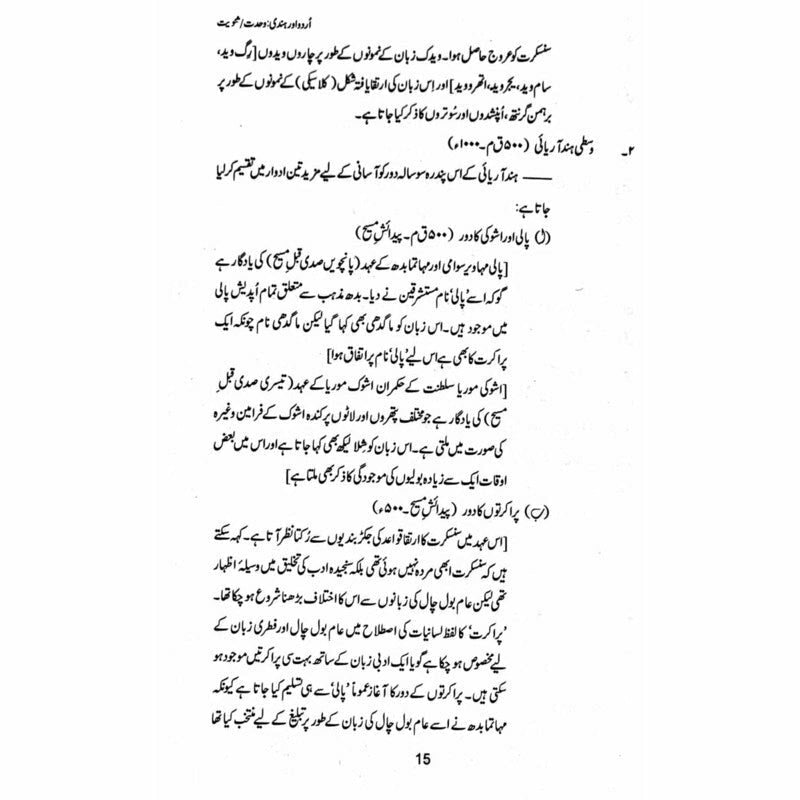 اُردو اور ہندی: وحدت/ثنویت
سنسکرت کو عروج حاصل ہوا۔ ویدک زبان کے نمونوں کے طور پر چاروں ویدوں [رِگ وید،
سام وید، یجر وید، اتھر ووید] اور اِس زبان کی ارتقا یافتہ شکل (کلاسیکی) کے نمونوں کے طور پر
برہمن گرنتھ، اُپنشدوں اور سُوتروں کا ذکر کیا جاتا ہے۔
۲۔ وسطی ہند آریائی (۵۰۰ ق م۔ ۱۰۰۰ء)
ـــــــ ہند آریائی کے اس پندرہ سو سالہ دور کو آسانی کے لیے مزید تین ادوار میں تقسیم کر لیا
جاتا ہے:
(ل) پالی اور اشوکی کا دور (۵۰۰ ق م۔ پیدائشِ مسیح)
[پالی مہاویر سوامی اور مہاتما بدھ کے عہد (پانچویں صدی قبلِ مسیح) کی یادگار ہے
گو کہ اسے 'پالی' نام مستشرقین نے دیا۔ بدھ مذہب سے متعلق تمام اُپدیش پالی
میں موجود ہیں۔ اس زبان کو ماگدھی بھی کہا گیا لیکن ماگدھی نام چونکہ ایک
پراکرت کا بھی ہے اس لیے 'پالی' نام پر اتفاق ہوا]
[اشوکی موریا سلطنت کے حکمران اشوک موریا کے عہد (تیسری صدی قبلِ
مسیح) کی یادگار ہے جو مختلف پتھروں اور لاٹوں پر کندہ اشوک کے فرامین وغیرہ
کی صورت میں ملتی ہے۔ اس زبان کو شِلا لیکھ بھی کہا جاتا ہے اور اس میں بعض
اوقات ایک سے زیادہ بولیوں کی موجودگی کا ذکر بھی ملتا ہے]
(ب) پراکرتوں کا دور (پیدائشِ مسیح۔ ۵۰۰ء)
[اس عہد میں سنسکرت کا ارتقا قواعد کی جکڑ بندیوں سے رُکتا نظر آتا ہے۔ کہہ سکتے
ہیں کہ سنسکرت ابھی مردہ نہیں ہوئی تھی بلکہ سنجیدہ ادب کی تخلیق میں وسیلۂ اظہار
تھی لیکن عام بول چال کی زبانوں سے اس کا اختلاف بڑھنا شروع ہو چکا تھا۔
'پراکرت' کا لفظ لسانیات کی اصطلاح میں عام بول چال اور فطری زبان کے
لیے مخصوص ہو چکا ہے گویا ایک ادبی زبان کے ساتھ بہت سی پراکرتیں موجود ہو
سکتی ہیں۔ پراکرتوں کے دور کا آغاز عموماً 'پالی' سے ہی تسلیم کیا جاتا ہے کیونکہ
مہاتما بدھ نے اسے عام بول چال کی زبان کے طور پر تبلیغ کے لیے منتخب کیا تھا
15